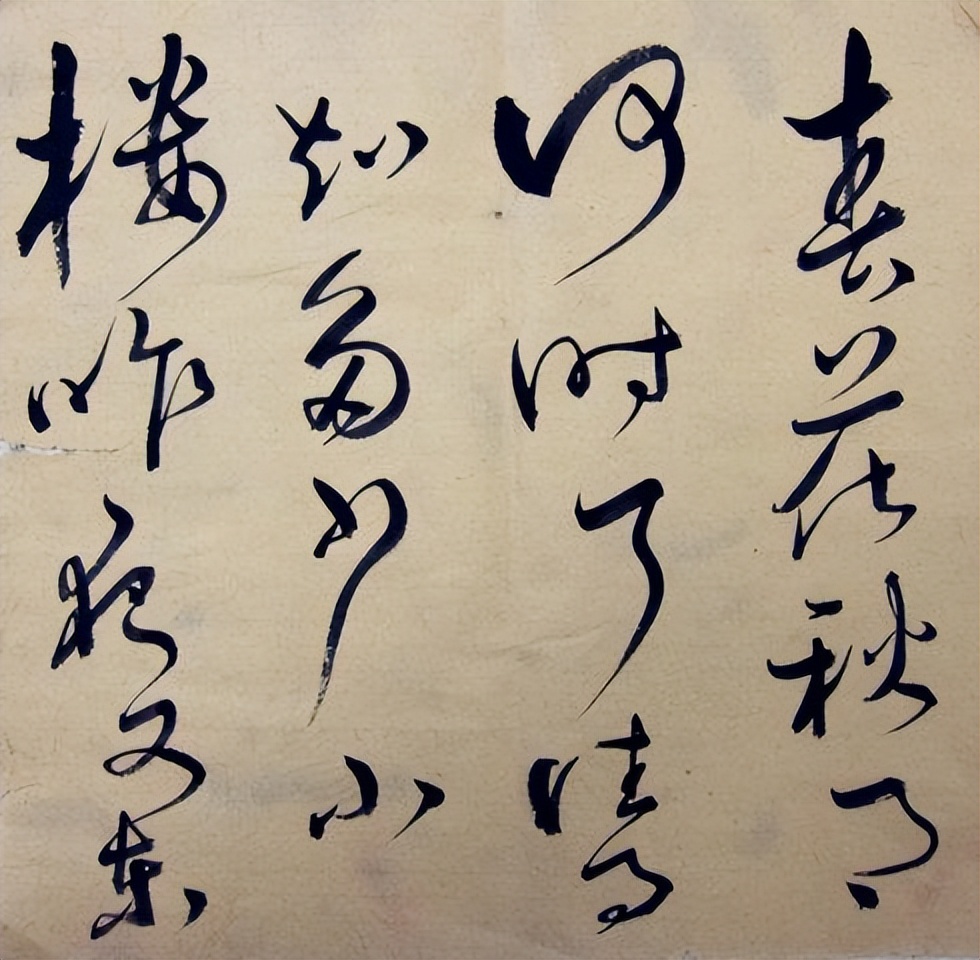 春花秋月
何時了往事
知多少小
樓昨夜又東